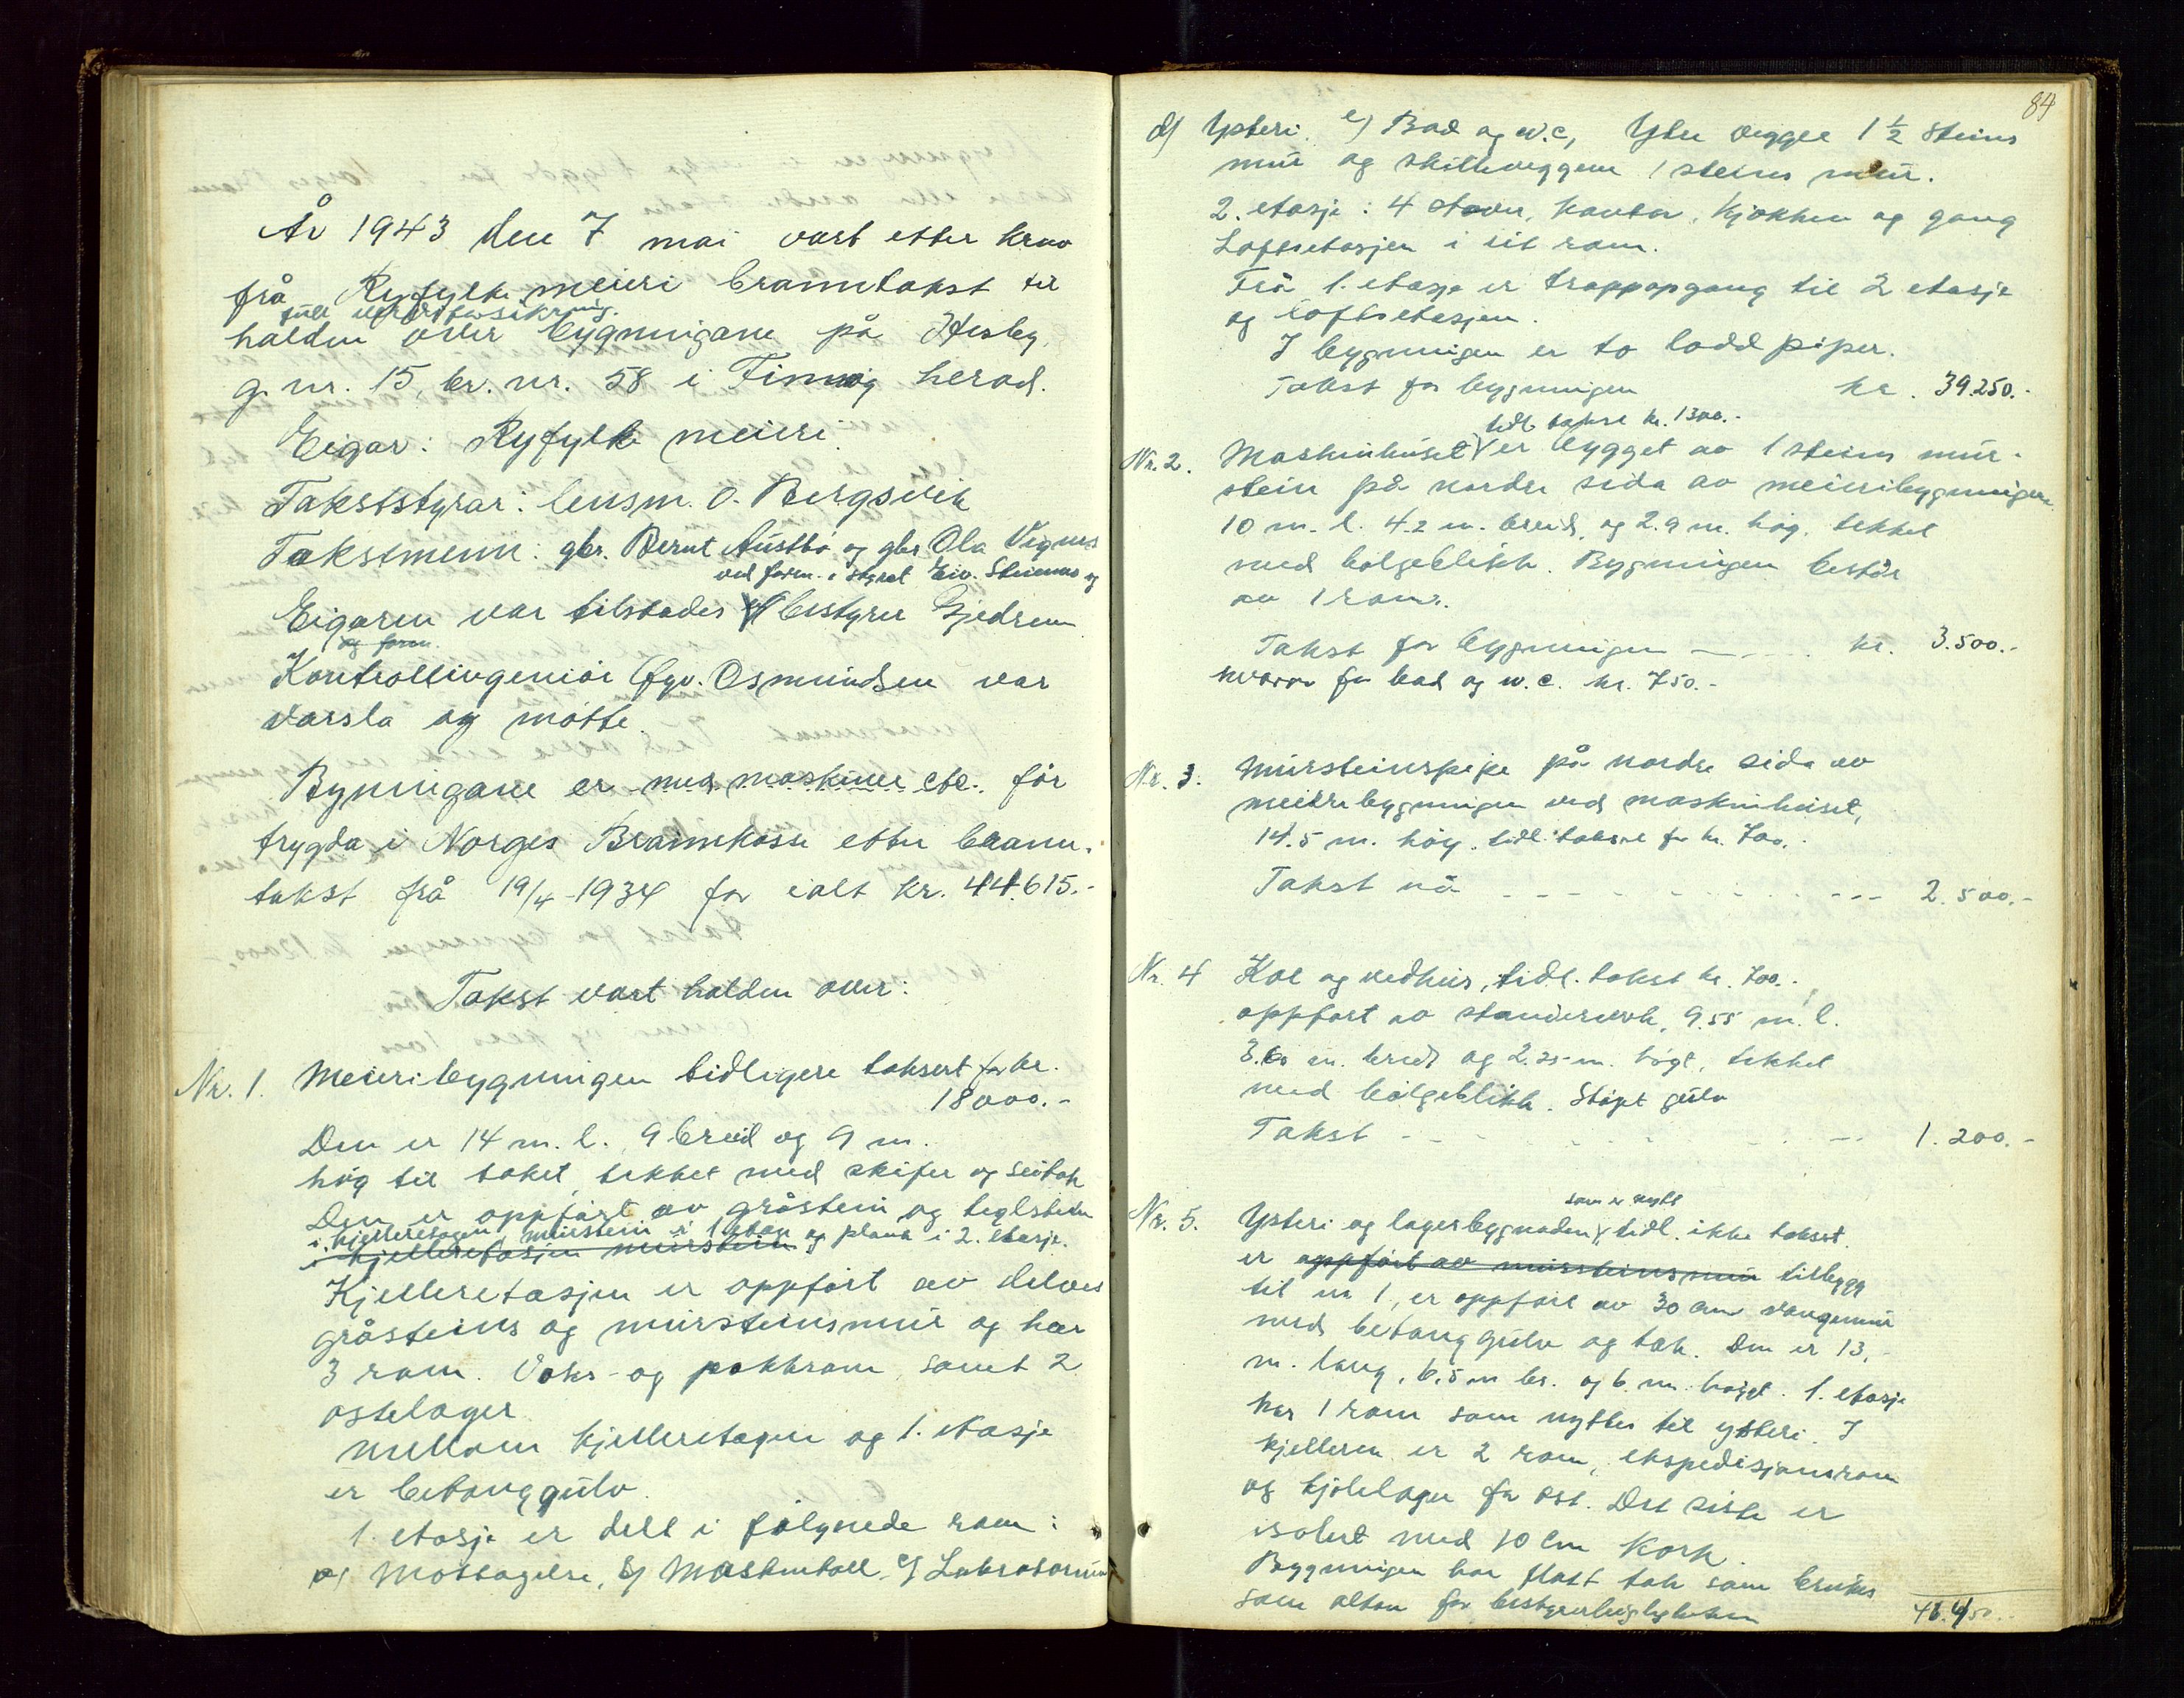 År 1943 den 7 mai vart etter krav
frå Ryfylke meieri branntakst til
full verdiforsikring
halden over bygningane på Hesby,
g. nr. 15, br. nr. 58 i Finnøy herad.
Eigar: Ryfylke meieri.
Takststyrar: lensm. O. Bergsvik
Takstmenn: gbr. Bernt Austbø og gbr Ola Vignes
ved form. i styret Eiv. Steinnes og
Eigaren var tilstades v/ bestyrer Gjedrem
og form.
Kontrollingeniør Ogv. Osmundsen var
varsla og møtte.
Byningane er med maskiner etc. før
trygda i Norges Brannkasse etter brann-
takst frå 19/4-1934 for ialt kr. 44.615.-
Takst vart halden over:
Nr. 1. Meieribygningen tidligere taksert for kr.
18000.-
Den er 14 m. l. 9 breid og 9 m.
høg til taket, tekket med skifer og
Den er oppført av gråstein og teglstein
i kjelleretagen, murstein i 1 etag og plank i 2. etasje.
i kjelleretasjen murstein
Kjelleretasjen er oppført av delvis
gråsteins og mursteinsmur og har
3 rom. Voks- og pakkrom, samt 2
ostelager
Mellom kjelleretagen og 1. etasje
er betonggulv.
1. etasje er delt i følgnede rom:
a) Mottagelse, b) Maskinhall c) Laboratorium
84
d) Ysteri. e) Bad og w.c, Ytre vegger 1 1/2 steins
mur og skilleveggene 1 steins mur.
2. etasje: 4 stover, kontor, kjøkken og gang
Loftsetasjen i eit rom.
Frå 1. etasje er trappopgang til 2 etasje
og loftsetasjen.
I bygningen er to lodd piper.
Takst for bygningen kr. 39.250.-
tidl. takse kr. 1300.-
Nr. 2. Maskinhuset er bygget av 1 steins mur-
stein på nordre sida av meieribygningen
10 m. l. 4.2 m. breid, og 2.9 m. høg, tekket
med bølgeblikk. Bygningen består
av 1 rom.
Takst for bygningen kr. 3.500.-
hvorav for bad og w.c. kr. 750.-
Nr. 3. Mursteinspipe på nordre side av
meieribygningen ved maskinhuset,
14.5 m. høg. tidl. taksert for kr. 700.-
Takst nå 2.500.-
Nr. 4 Kol og vedhus, tidl. takst kr. 700.-
oppført av standerverk, 9.55 m. l.
m. breidt og 2.25 m. høgt, tekket
med bølgeblikk. Støpt gulv
Takst 1.200.-
som er nytt
Nr. 5. Ysteri og lagerbygnaden, tidl. ikke taksert
er oppført av mursteinsmur tilbygg
til nr 1, er oppført av 30 cm vangemur
med betonggulv og tak. Den er 13,-
m. lang, 6,5 m br. og 6. m. høgt. 1. etasje
har 1 rom som nyttes til ysteri. I
kjelleren er 2 rom, ekspedisjonsrom
og kjølelager for ost. Det siste er
isolert med 10 cm kork.
Bygningen har flatt tak som brukes
som altan for bestyrerleiligheten
46.450.-